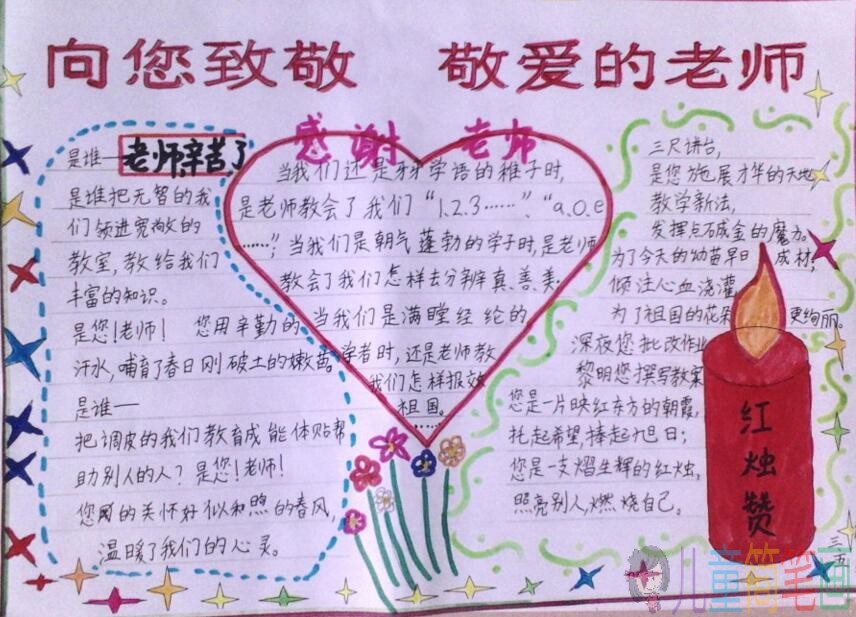 向您致敬 敬爱的老师
老师辛苦了
是谁——
是谁把无智的我
们领进宽敞的
教室,教给我们
丰富的知识。
是您!老师! 您用辛勤的
汗水,哺育了春日刚破土的嫩苗。
是谁——
把调皮的我们教育成能体贴帮
助别人的人?是您!老师!
您的关怀好似和煦的春风,
温暖了我们的心灵。
感谢老师
当我们还是牙牙学语的稚子时,
是老师教会了我们“1.2.3……”、“a.o.e
……”;当我们是朝气蓬勃的学子时,是老师
教会了我们怎样去分辨真、善、美;
当我们是满瞠经纶的
学者时,还是老师教
我们怎样报效
祖国。
……
三尺讲台,
是您施展才华的天地
教学新法,
发挥点石成金的魔力。
为了今天的幼苗早日成材,
倾注心血浇灌
为了祖国的花朵更绚丽。
深夜您批改作业
黎明您撰写教案
您是一片映红东方的朝霞,
托起希望,捧起旭日;
您是一支熠生辉的红烛,
照亮别人,燃烧自己。
红烛赞
三五
儿童简笔画